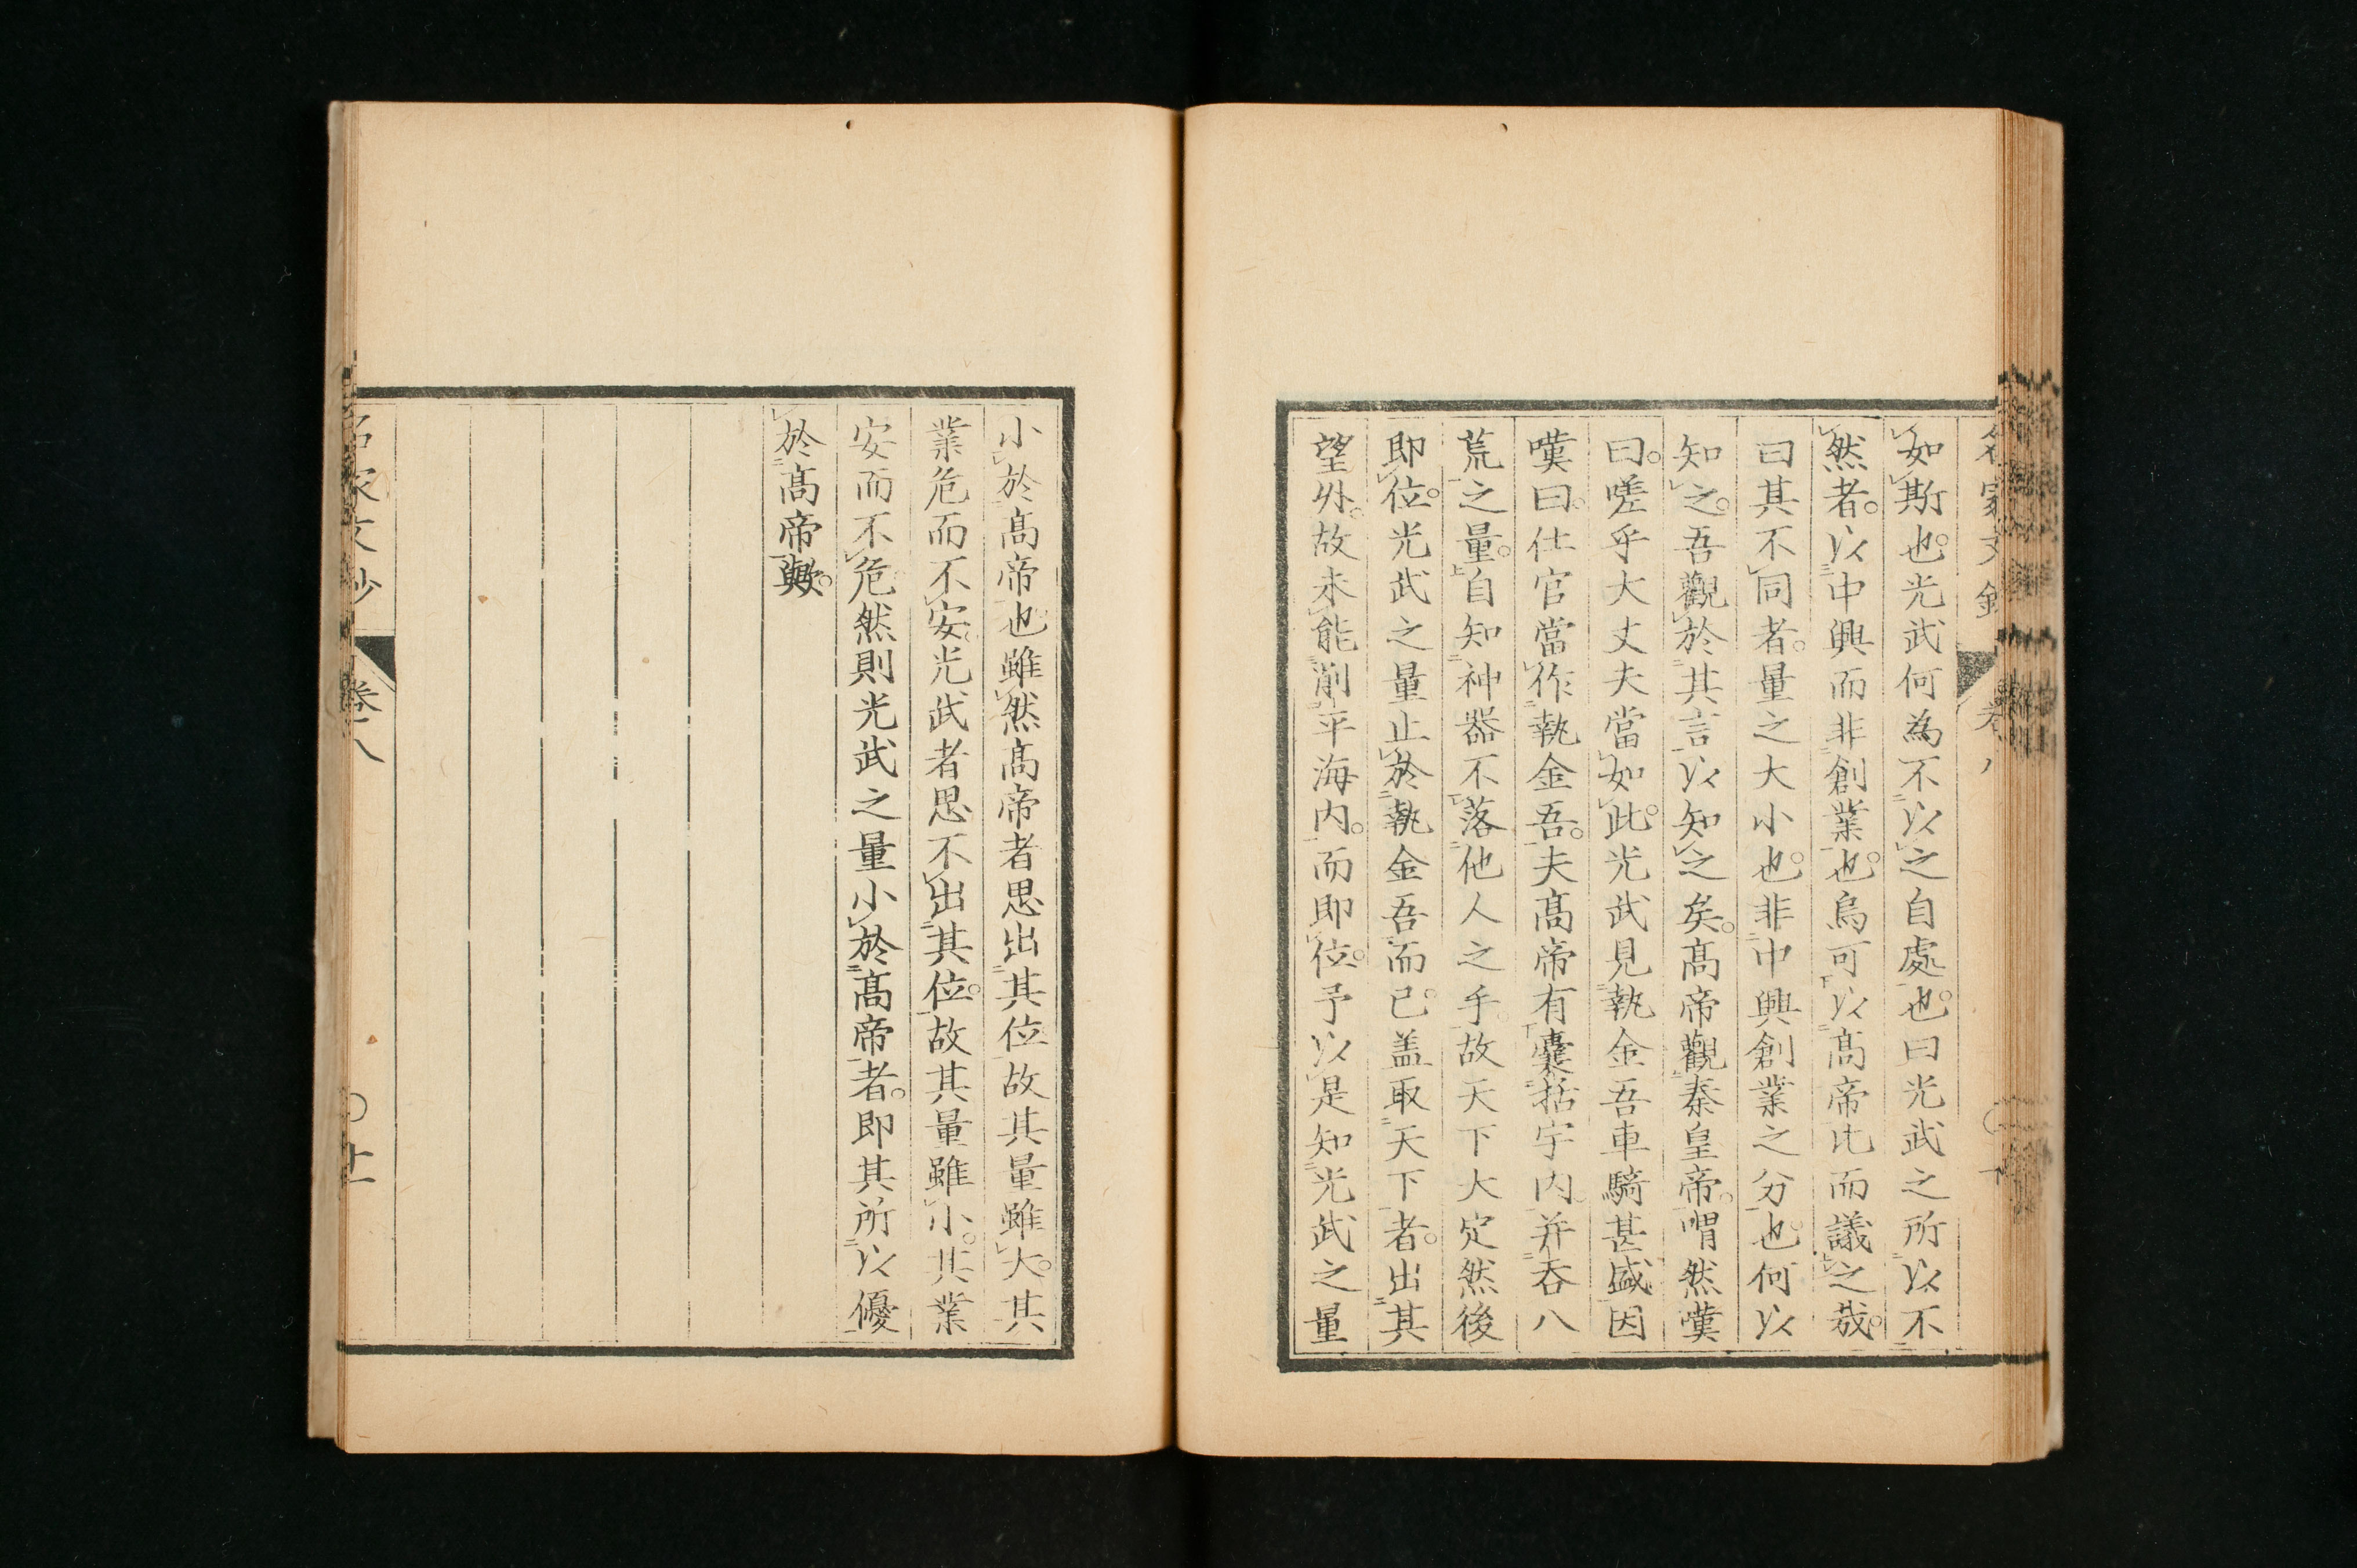 名家文鈔 卷八
如斯也。光武何為不以之自處也。曰光武之所以不
然者。以中興而非創業也。烏可以髙帝比而議之哉。
曰其不同者。量之大小也。非中興創業之分也。何以
知之。吾觀於其言以知之矣。髙帝觀秦皇帝。喟然嘆
曰。嗟乎大丈夫當如此。光武見執金吾車騎甚盛因
嘆曰。仕官當作執金吾。夫髙帝有囊括宇内并呑八
荒之量。自知神器不落他人之手。故天下大定然後
即位。光武之量止於執金吾而已。盖取天下者。出其
望外。故未能削平海内。而即位。予以是知光武之量
小於髙帝也。雖然髙帝者思出其位故其量雖大。其
業危而不安。光武者思不出其位。故其量雖小。其業
安而不危然則光武之量小於髙帝者。即其所以優
於髙帝歟。
名家文鈔 卷八 〇十一